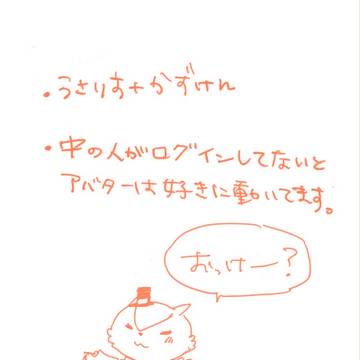 ・うさりす+かずけん
・中の人がログインしてないと
アバターは好きに動いてます。
おっけー?